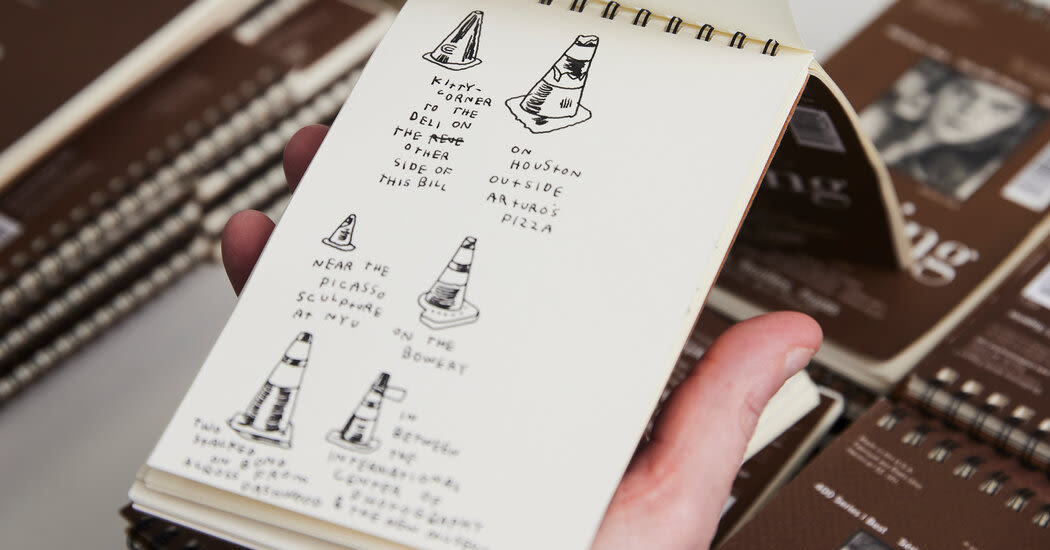 KITTY-
CORNER
TO THE
DELI ON
THE REVE
OTHER
SIDE OF
THIS BILL
ON
HOUSTON
OUTSIDE
ARTURO'S
PIZZA
NEAR THE
PICASSO
SCULPTURE
AT NYU
ON THE
BOWERY
TWO
STACKED
FROM
ACROSS
IN
BETWEEN
THE
INTERNATIONAL
CENTER OF
PHOTOGRAPHY
& THE NEW MUSEUM
ing
ing
400 Series | Best